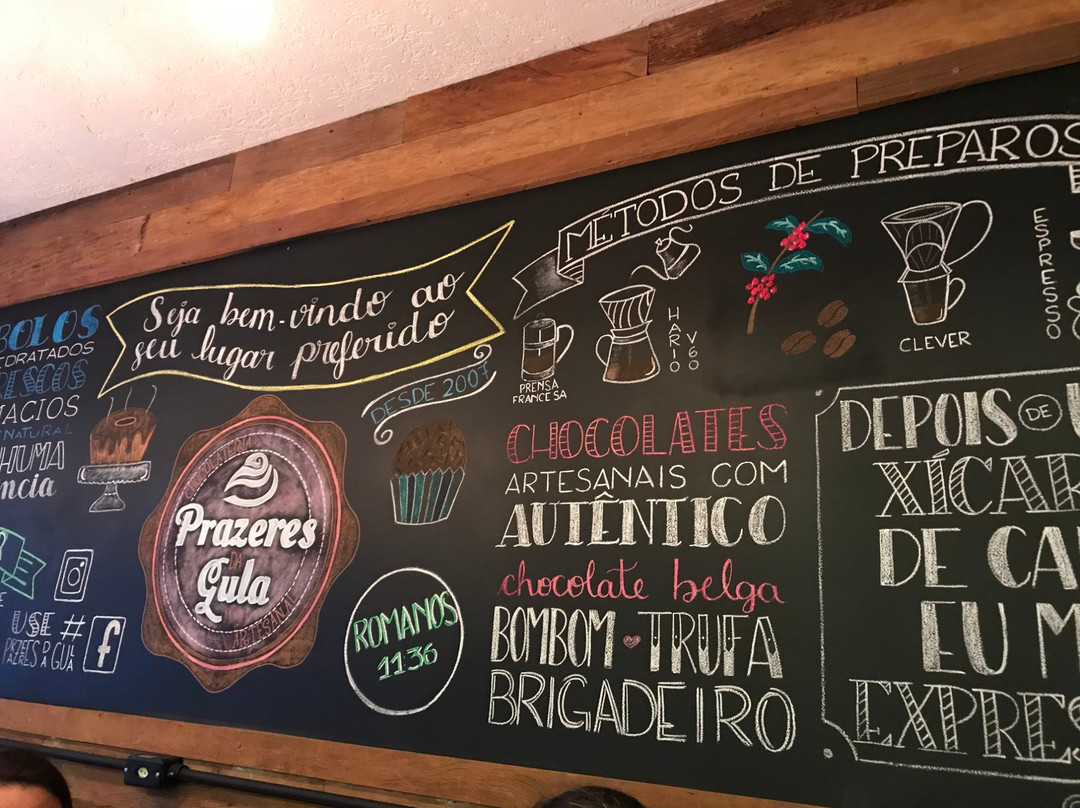 BOLOS
EDRATADOS
RISCOS
MACIOS
NATURAL
HUMA
ncia
USE #
PRAZERES DA GULA
f
Seja bem-vindo ao
seu lugar preferido
DESDE 2007
Prazeres
DA
Gula
ARTESANAL
ROMANOS
11:36
MÉTODOS DE PREPAROS
PRENSA
FRANCESA
HARIO
V60
CLEVER
ESPRESSO
CHOCOLATES
ARTESANAIS COM
AUTÊNTICO
chocolate belga
BOMBOM TRUFA
BRIGADEIRO
DEPOIS DE U
XÍCAR
DE CA
EU M
EXPRES